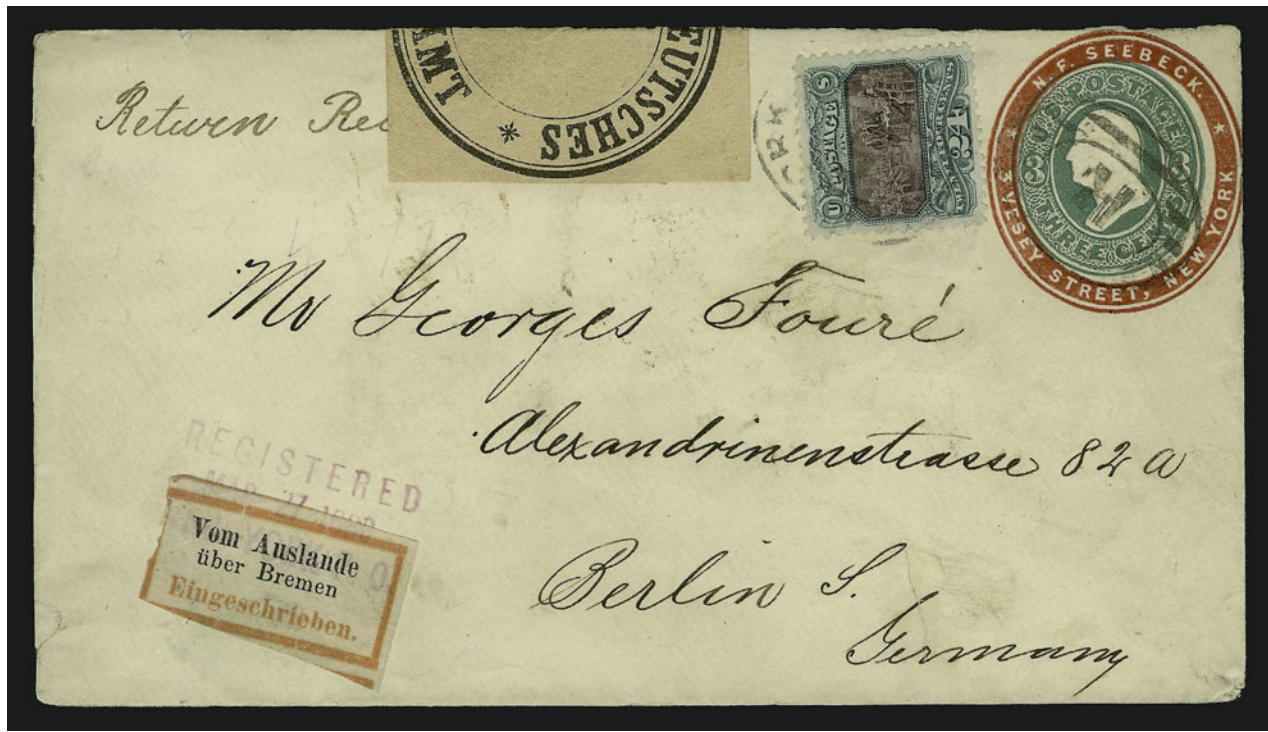 Return Rec
EUTSCHES
*
N. F. SEEBECK.
3 VESEY STREET, NEW YORK
U S POSTAGE
3 3
THREE CENTS
U S
POSTAGE
24
Mr Georges Fouré
Alexandrinenstrasse 82 a
Berlin S.
Germany
REGISTERED
Vom Auslande
über Bremen
Eingeschrieben.